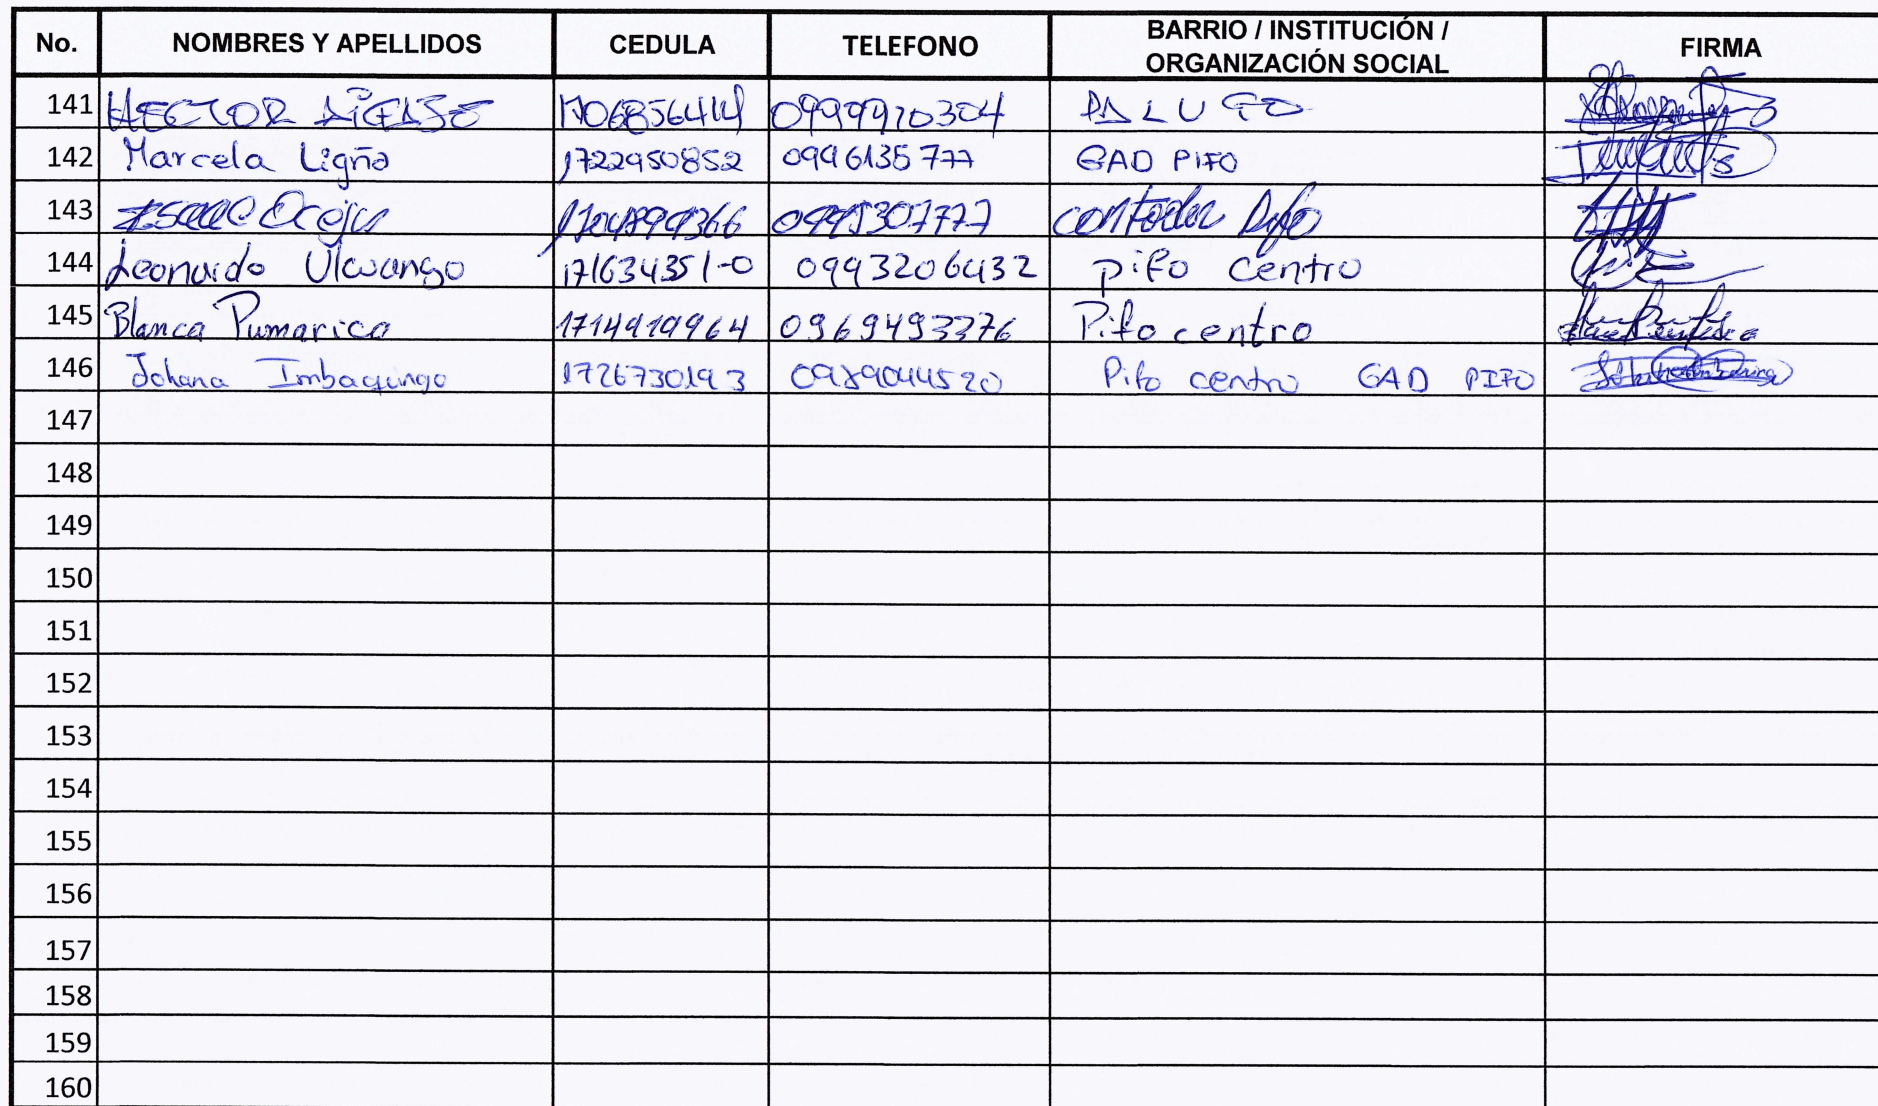 No. NOMBRES Y APELLIDOS CEDULA TELEFONO BARRIO / INSTITUCIÓN / ORGANIZACIÓN SOCIAL FIRMA
141 HECTOR 1706856414 0999970304 PALUGO
142 Marcela Ligña 1722950852 0996135777 GAD PIFO
143 0995307777 Pifo
144 Leonardo Ulcuango 171634351-0 0993206432 pifo centro
145 Blanca Pumarica 1714919964 0969493376 Pifo centro
146 Johana Imbaquingo 1726730193 0989044520 Pifo centro GAD PIFO
147
148
149
150
151
152
153
154
155
156
157
158
159
160